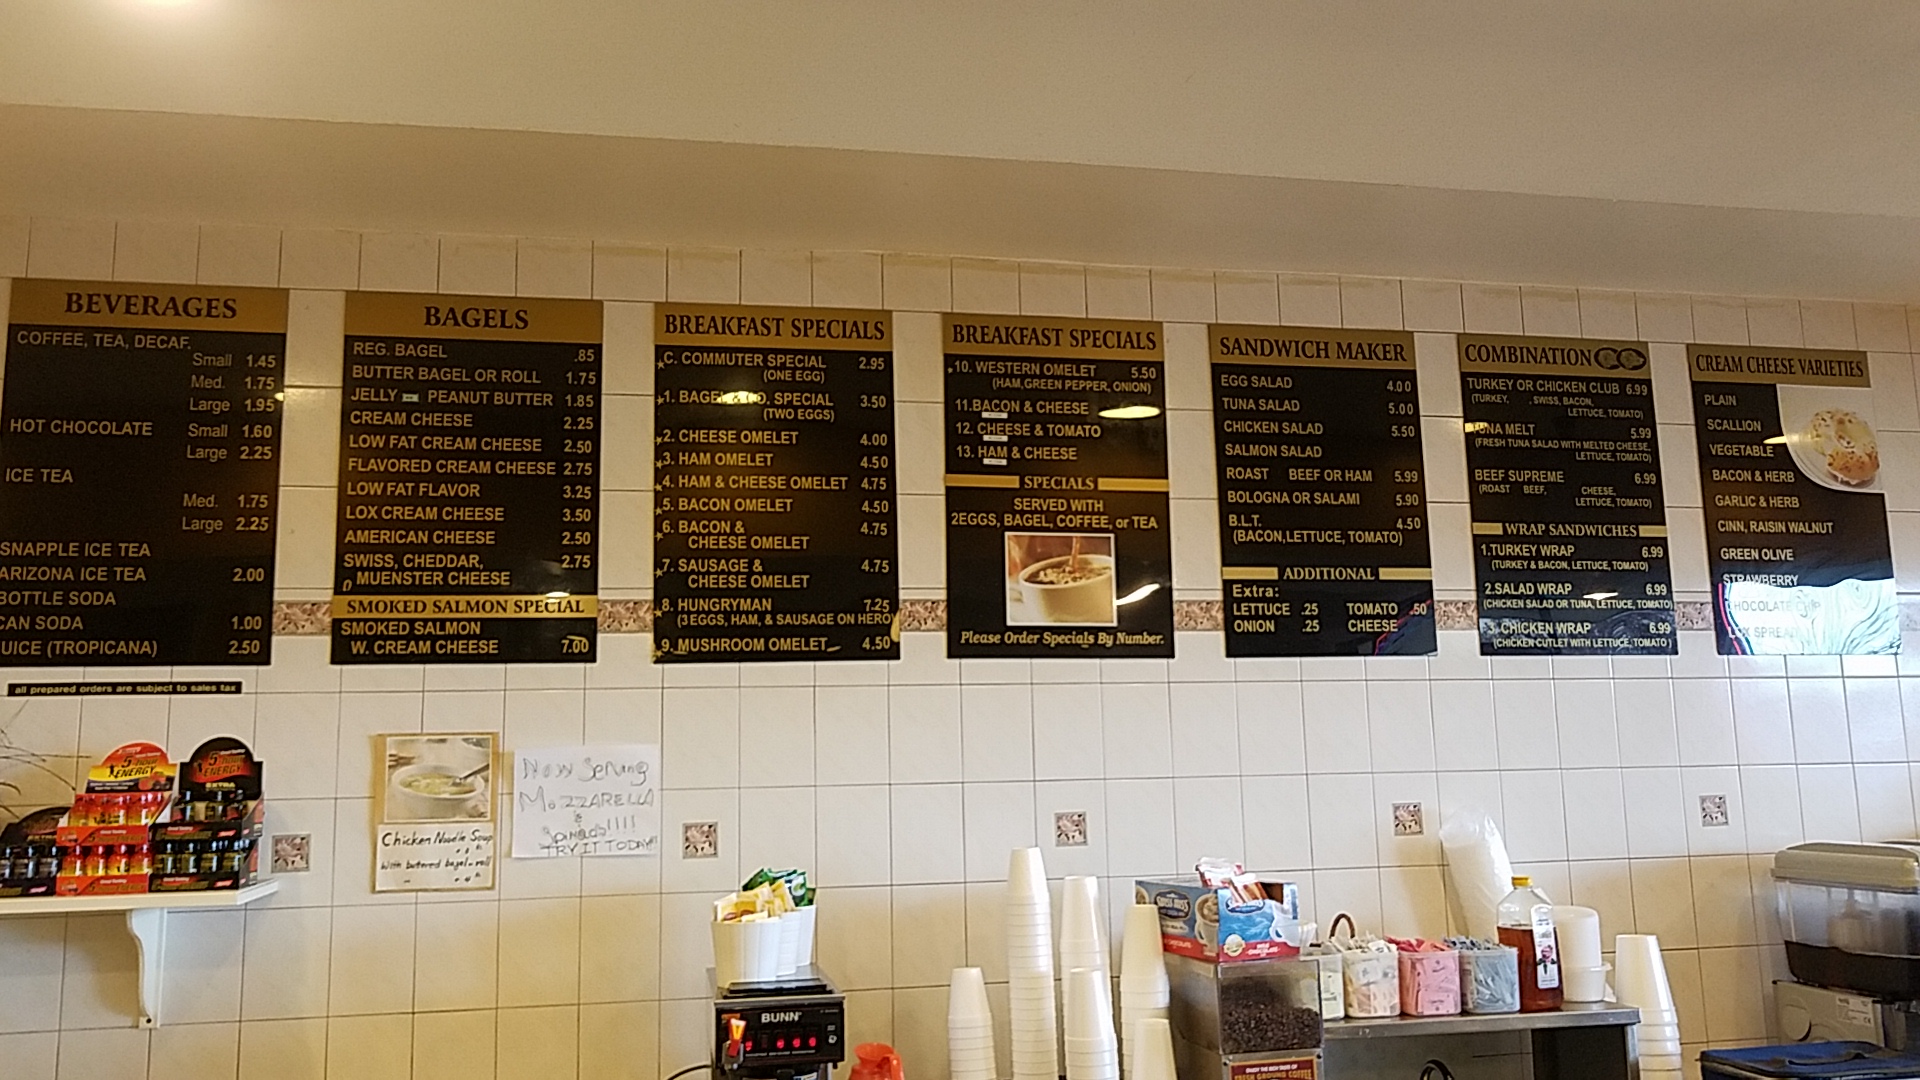 BEVERAGES
COFFEE, TEA, DECAF.
Small 1.45
Med. 1.75
Large 1.95
HOT CHOCOLATE Small 1.60
Large 2.25
ICE TEA
Med. 1.75
Large 2.25
SNAPPLE ICE TEA
ARIZONA ICE TEA 2.00
BOTTLE SODA
CAN SODA 1.00
UICE (TROPICANA) 2.50
all prepared orders are subject to sales tax
BAGELS
REG. BAGEL .85
BUTTER BAGEL OR ROLL 1.75
JELLY PEANUT BUTTER 1.85
CREAM CHEESE 2.25
LOW FAT CREAM CHEESE 2.50
FLAVORED CREAM CHEESE 2.75
LOW FAT FLAVOR 3.25
LOX CREAM CHEESE 3.50
AMERICAN CHEESE 2.50
SWISS, CHEDDAR, 2.75
MUENSTER CHEESE
SMOKED SALMON SPECIAL
SMOKED SALMON
W. CREAM CHEESE 7.00
BREAKFAST SPECIALS
C. COMMUTER SPECIAL 2.95
(ONE EGG)
1. BAGEL & CO. SPECIAL 3.50
(TWO EGGS)
2. CHEESE OMELET 4.00
3. HAM OMELET 4.50
4. HAM & CHEESE OMELET 4.75
5. BACON OMELET 4.50
6. BACON & 4.75
CHEESE OMELET
7. SAUSAGE & 4.75
CHEESE OMELET
8. HUNGRYMAN 7.25
(3 EGGS, HAM, & SAUSAGE ON HERO)
9. MUSHROOM OMELET 4.50
BREAKFAST SPECIALS
10. WESTERN OMELET 5.50
(HAM, GREEN PEPPER, ONION)
11. BACON & CHEESE
12. CHEESE & TOMATO
13. HAM & CHEESE
SPECIALS
SERVED WITH
2EGGS, BAGEL, COFFEE, or TEA
Please Order Specials By Number.
SANDWICH MAKER
EGG SALAD 4.00
TUNA SALAD 5.00
CHICKEN SALAD 5.50
SALMON SALAD
ROAST BEEF OR HAM 5.99
BOLOGNA OR SALAMI 5.90
B.L.T. 4.50
(BACON, LETTUCE, TOMATO)
ADDITIONAL
Extra:
LETTUCE .25 TOMATO .50
ONION .25 CHEESE
COMBINATION
TURKEY OR CHICKEN CLUB 6.99
(TURKEY, , SWISS, BACON,
LETTUCE, TOMATO)
TUNA MELT 5.99
(FRESH TUNA SALAD WITH MELTED CHEESE,
LETTUCE, TOMATO)
BEEF SUPREME 6.99
(ROAST BEEF, CHEESE,
LETTUCE, TOMATO)
WRAP SANDWICHES
1. TURKEY WRAP 6.99
(TURKEY & BACON, LETTUCE, TOMATO)
2. SALAD WRAP 6.99
(CHICKEN SALAD OR TUNA, LETTUCE, TOMATO)
3. CHICKEN WRAP 6.99
(CHICKEN CUTLET WITH LETTUCE, TOMATO)
CREAM CHEESE VARIETIES
PLAIN
SCALLION
VEGETABLE
BACON & HERB
GARLIC & HERB
CINN, RAISIN WALNUT
GREEN OLIVE
STRAWBERRY
HOCOLATE CHIP
LOX SPREAD
5-hour
ENERGY
5-hour
ENERGY
EXTRA
Chicken Noodle Soup
with buttered bagel-roll
Now Serving
MOZZARELLA
&
Spinach!!!!
TRY IT TODAY!!
BUNN
SWISS MISS
FRESH GROUND COFFEE